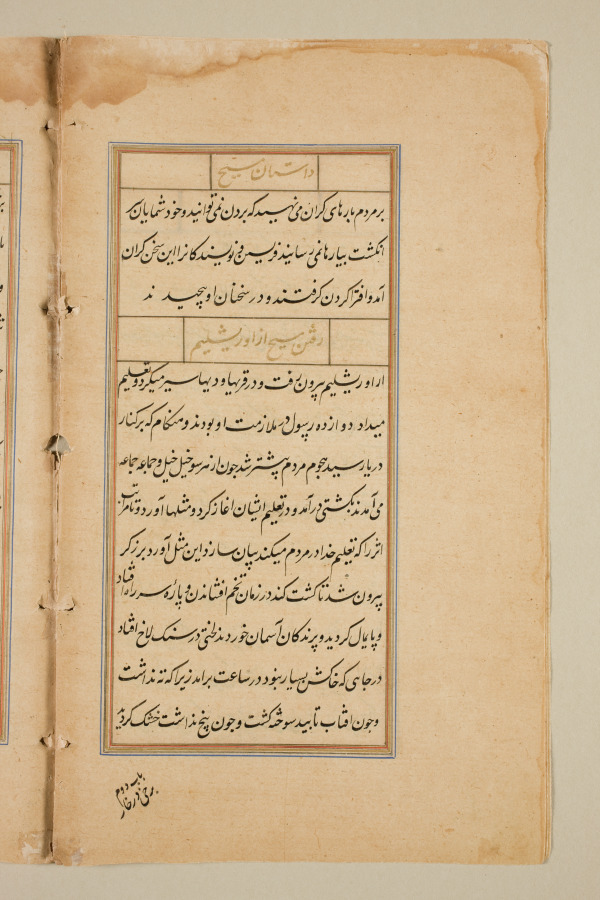 داستان مسیح
بر مردم بارهای کران می نهیید که بردن نمی توانید و خود شمایان سر
انکشت ببارها نمی رسانید فریسن و نویسندکانرا این سخن کران
آمد و افترا کردن کرفتند و در سخنان او پیچیدند
رفتن مسیح از اورشیلیم
از اورشیلیم بیرون رفت و در قریها و دیها سیر میکرد و تعلیم
میداد دوازده رسول در ملازمت او بودند و هنکام که بر کنار
دریا رسید هجوم مردم بیشتر شد جون از هر سو خیل خیل و جماعه جماعه
می آمدند بکشتی در آمد و در تعلیم ایشان اغاز کرد و مثلها آورد و تا مراتب
اثر را که تعلیم خدا در مردم میکند بیان سازد این مثل آورد برزکر
بیرون شد تا کشت کند در زمان تخم افشاندن و پارۀ سر راه افتاد
و پایمال کردید و پرندکان آسمان خوردند لختی در سنک لاخ افتاد
در جاهی که خاکش بسیار نبود در ساعت برامد زیرا که ته نداشت
و جون افتاب تابید سوخته کشت و جون بیخ نداشت خشک کردید
باب دوم
برخی در خار